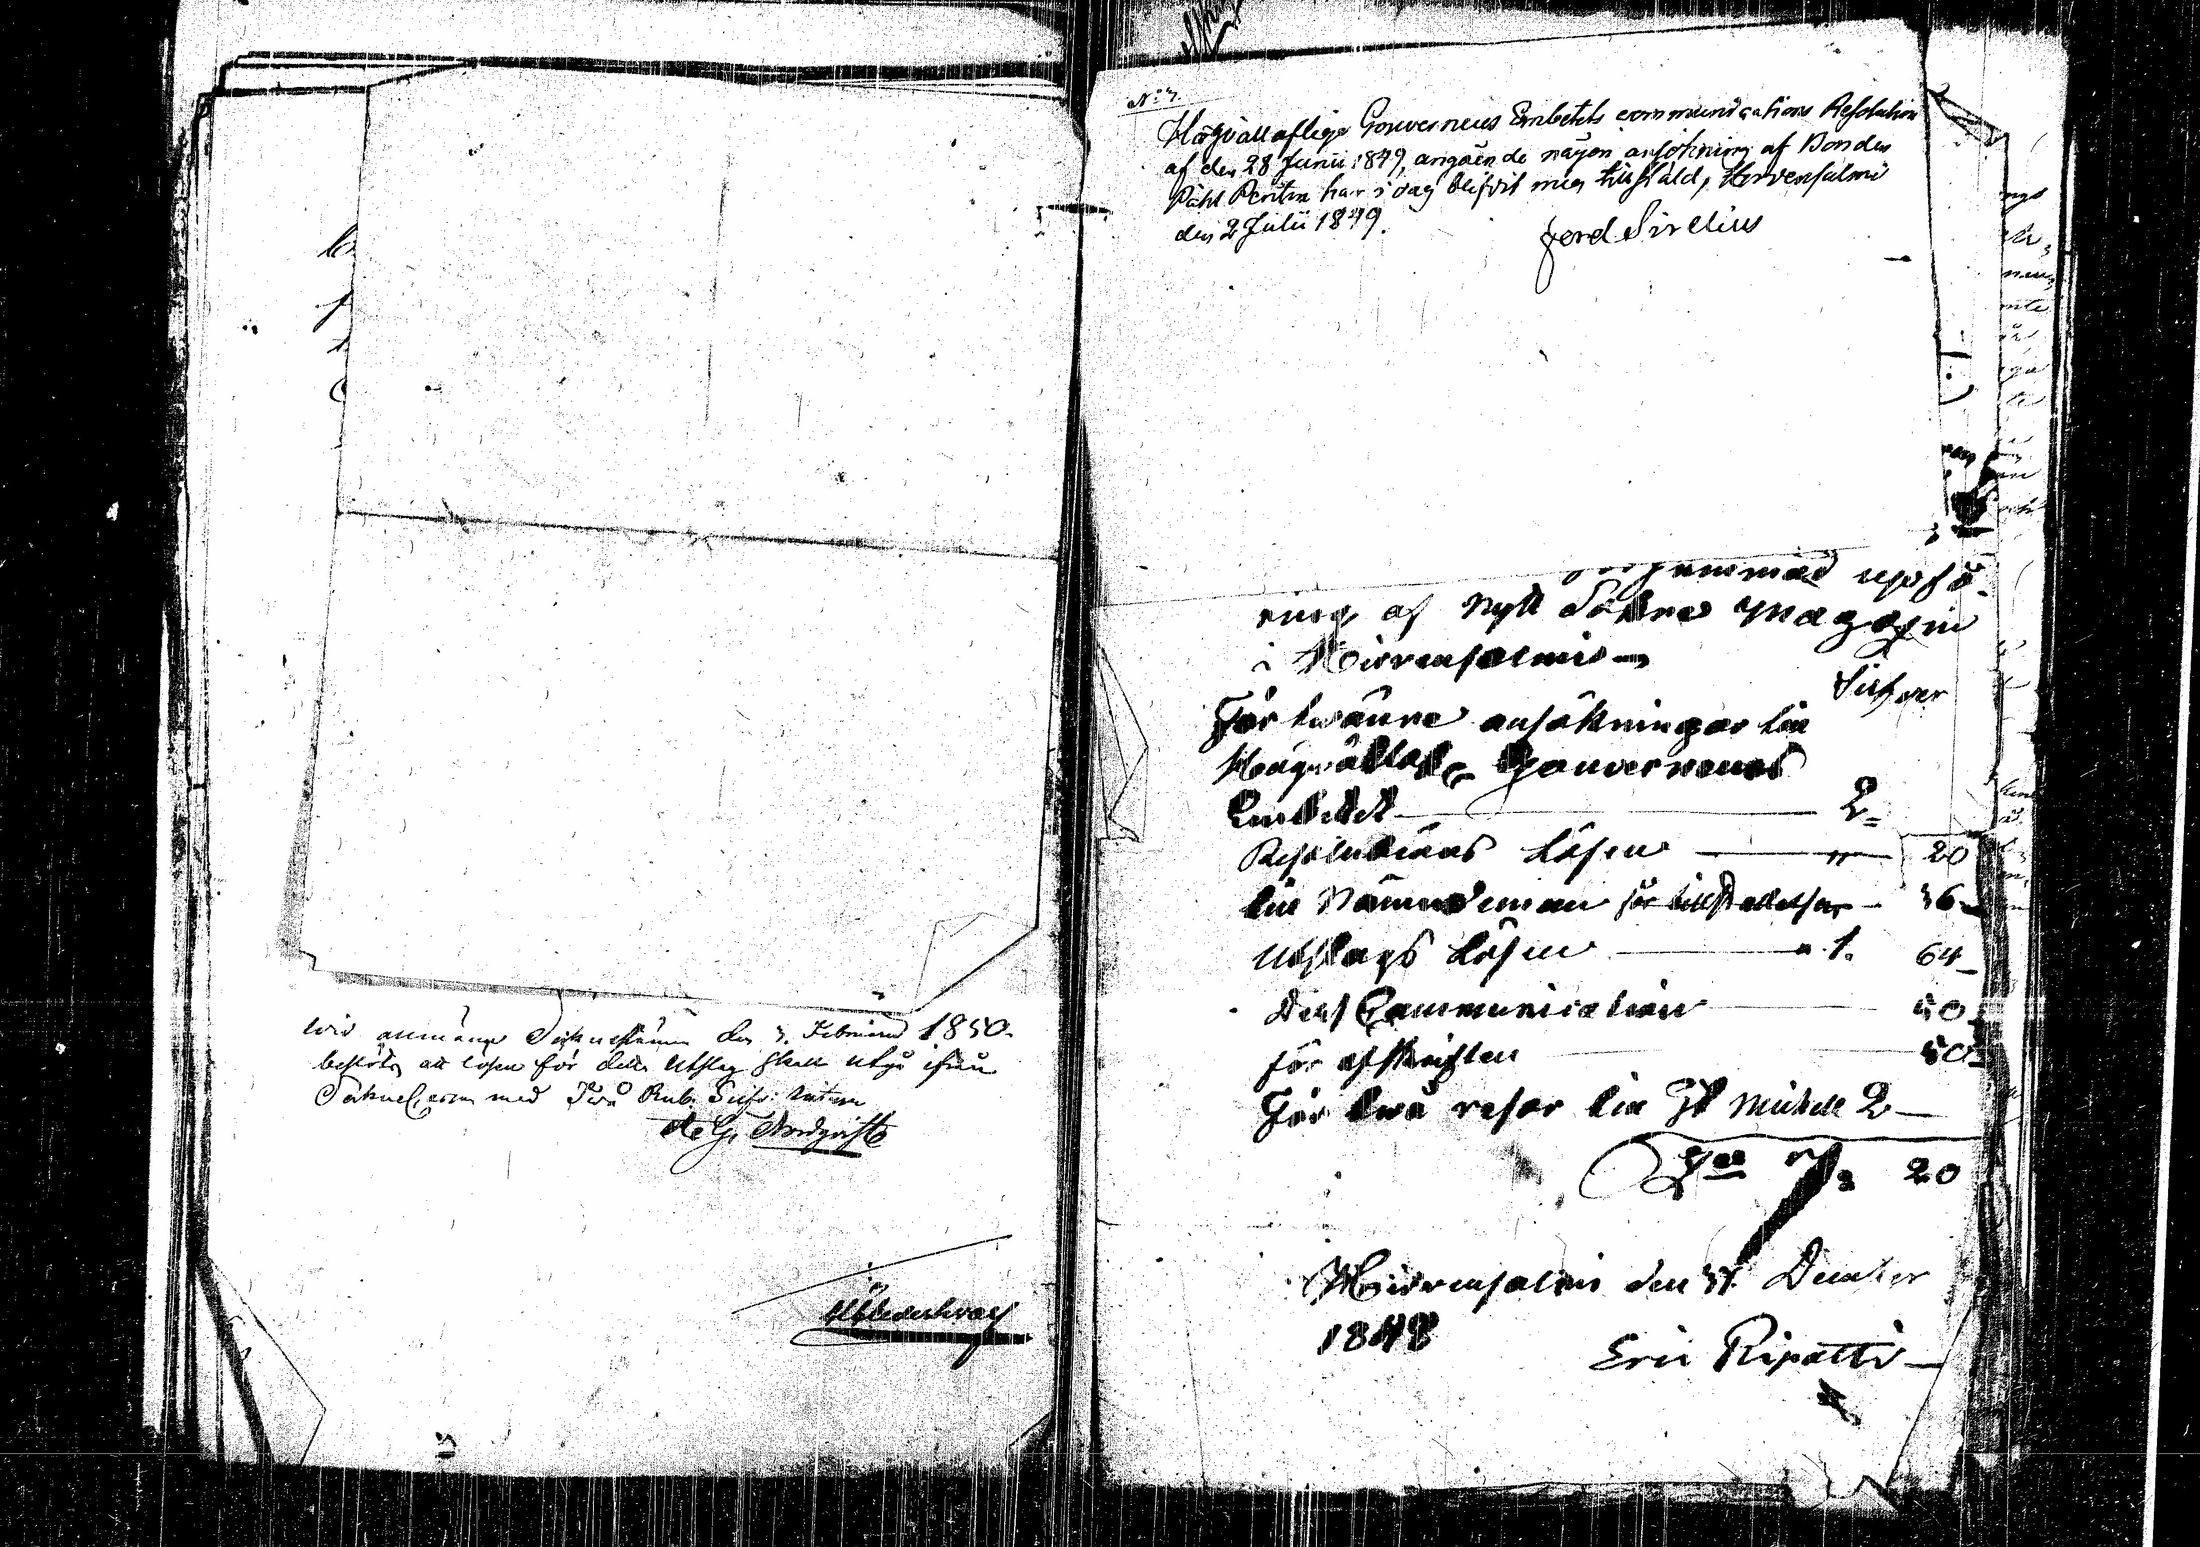 wid allmänna Socknestämma den 3. Februarii 1850.
beslöts att lösen för detta Utslag skall utgå ifrån
Sockne Cassan med Två Rub. Silfr:
A. G. Nordqvist
No 7.
Högvällaflige Gouverneurs Embetets communications Resolution
af den 28 Junii 1849, angående någon ansökning af Bonden
Påhl Pentin har i dag blifvit mig tillstäld, Hirvensalmi
den 2 Julii 1849.
Ferd Sirelius
uppfö-
ring af nytt Sockne Magazin
i Hirvensalmi
Silfver
För tvänne ansökningar till
Högvällofl. Gouverneurs
Embetet 2
Resolutions lösen " 20
till Nämndeman för tillställelser 36
Utslags lösen " 1. 64
Dess Communication 50
för afskriften 50
För två resor till St Michell 2
20
Hirvensalmi den 31 December
1848
Eric Ripatti